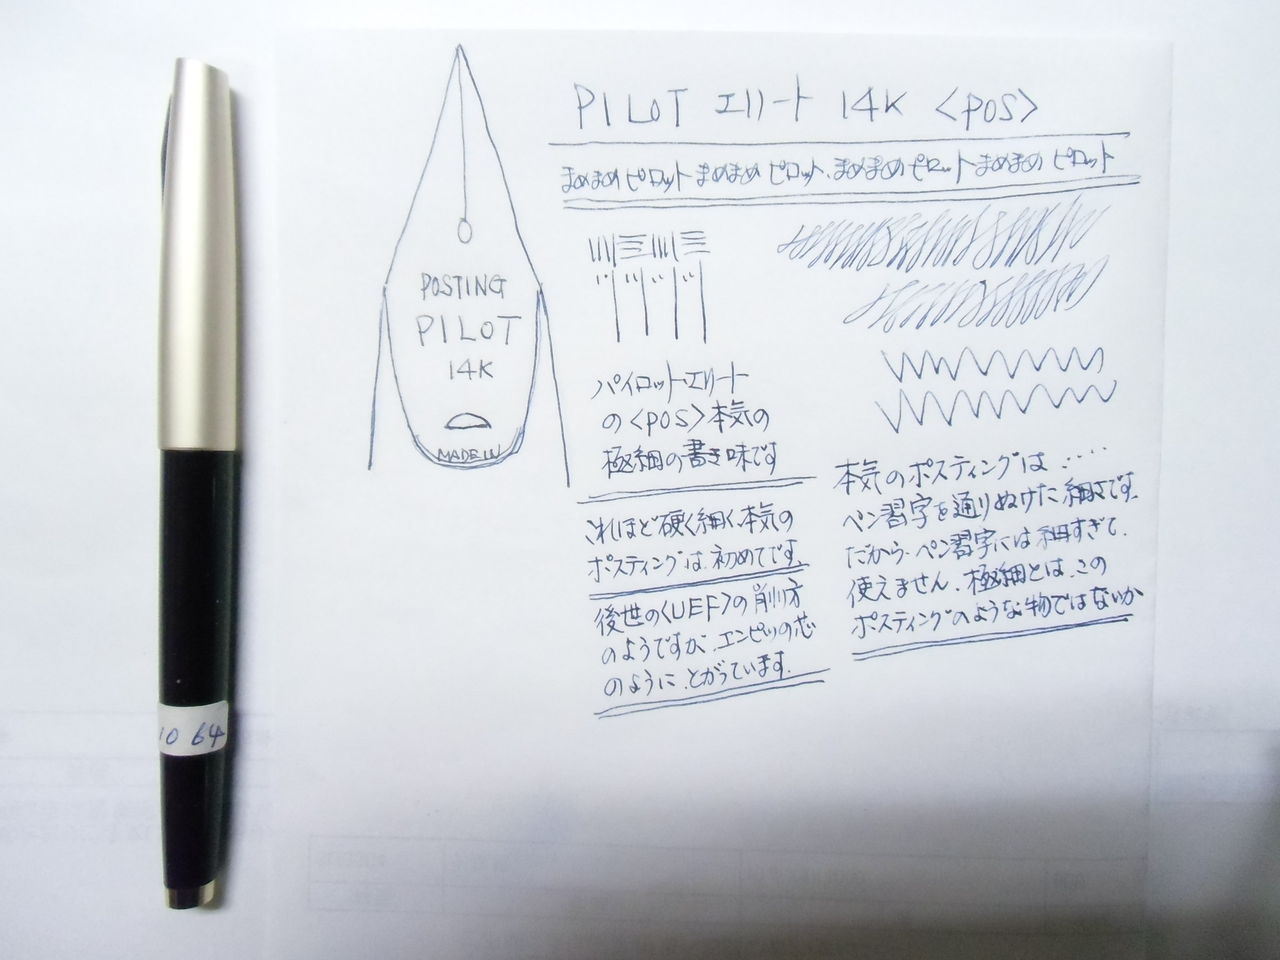 PILOT エリート 14K <POS>
まめまめピロットまめまめピロット、まめまめピロットまめまめピロット
POSTING
PILOT
14K
MADE IN
パイロットエリート
の<POS>本気の
極細の書き味です
これほど硬く細く、本気の
ポスティングは、初めてです。
後世の<UEF>の削り方
のようですが、エンピツの芯
のように、とがっています。
本気のポスティングは・・・・
ペン習字を通りぬけた細さです。
だから、ペン習字には細すぎて、
使えません。極細とは、この
ポスティングのような物ではないか
10 64